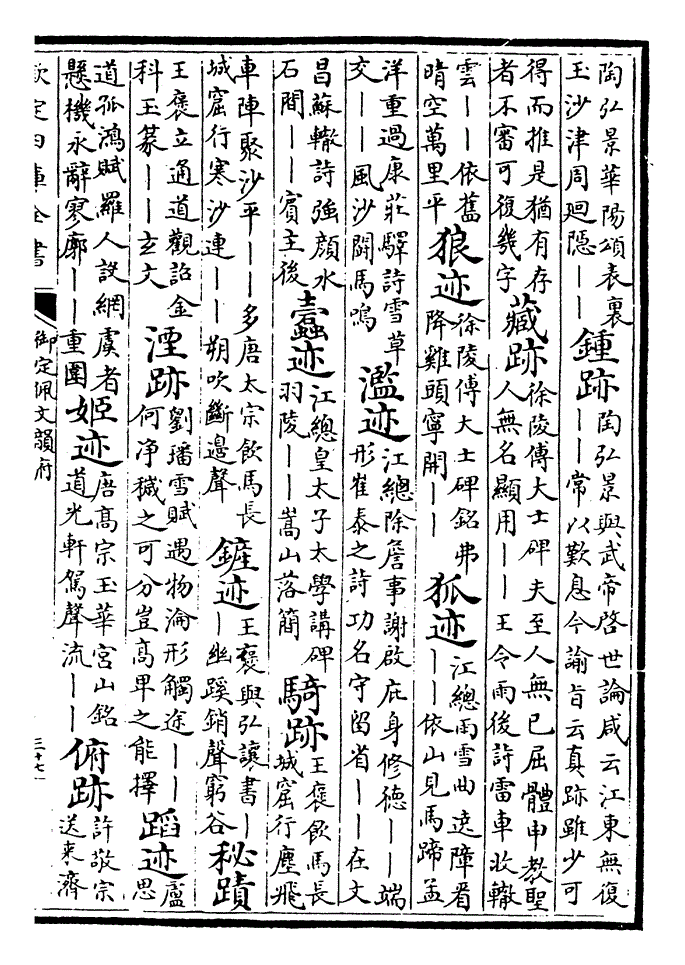 陶弘景華陽頌表裏
玉沙津周廻隱——
鍾跡
陶弘景與武帝啓世論咸云江東無復
——常以歎息今諭旨云真跡雖少可
得而推是猶有存
者不審可復幾字
藏跡
徐陵傅大士碑夫至人無已屈體申教聖
人無名顯用——王令雨後詩雷車收轍
雲——依舊
晴空萬里平
狼迹
徐陵傅大士碑銘弗
降雞頭寧開——
狐迹
江總雨雪曲遠障看
——依山見馬蹄孟
洋重過康莊驛詩雪草
交——風沙鬭馬鳴
濫迹
江總除詹事謝啟庇身修德——端
形崔泰之詩功名守留省——在文
昌蘇轍詩強顏水
石間——賓主後
蠹迹
江總皇太子太學講碑
羽陵——嵩山落簡
騎跡
王褒飲馬長
城窟行塵飛
車陣聚沙平——多唐太宗飲馬長
城窟行寒沙連——朔吹斷邊聲
鏟迹
王褒與弘讓書—
—幽蹊銷聲窮谷
秘蹟
王褒立通道觀詔金
科玉篆——玄文
湮跡
劉璠雪賦遇物淪形觸途——
何净穢之可分豈高卑之能擇
蹈迹
盧
思
道孤鴻賦羅人設網虞者
懸機永辭寥廓——重圍
姬迹
唐高宗玉華宮山銘
道光軒駕聲流——
俯跡
許敬宗
送来濟
欽定四庫全書
御定佩文韻府
三十七